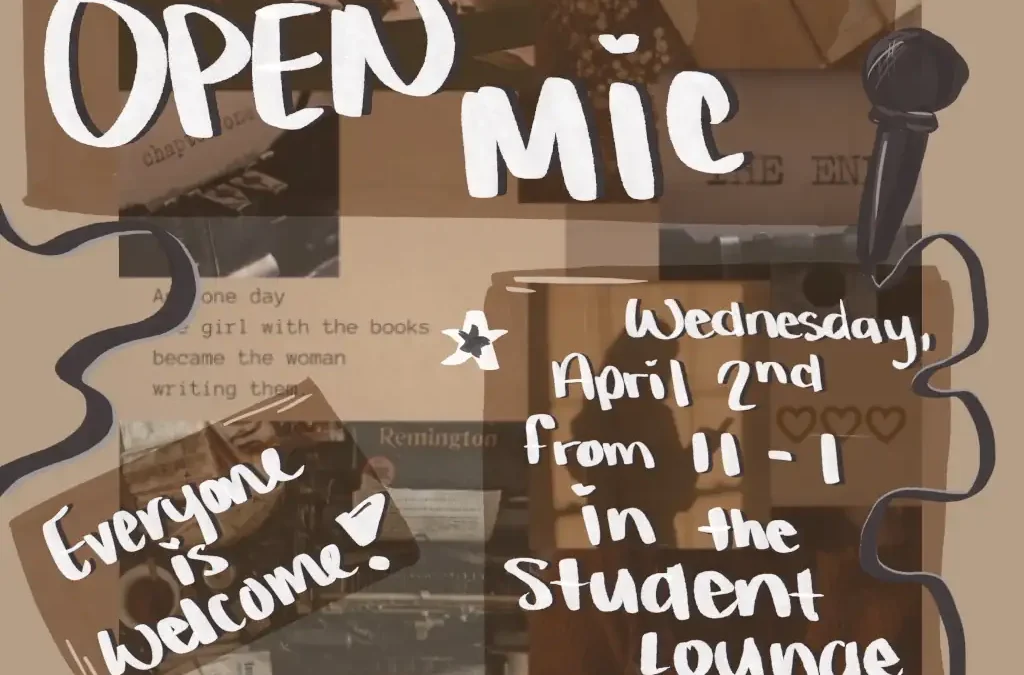 OPEN
MIC
chapter one
THE END
one day
girl with the books
became the woman
writing them.
Remington
Wednesday,
April 2nd
from 11 - 1
in the
Student
Lounge
Everyone
is
welcome!